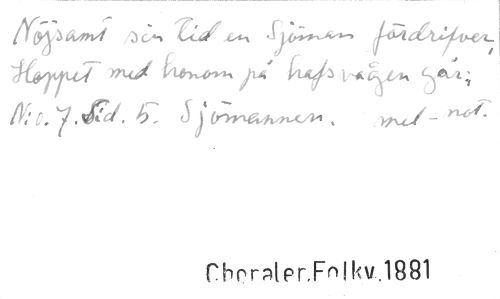 Nöjsamt sin tid en Sjöman fördrifver,
Hoppet med honom på hafsvågen går;
N:o. 7. Sid. 5. Sjömannen. mel-not.
Choraler.Folkv.1881